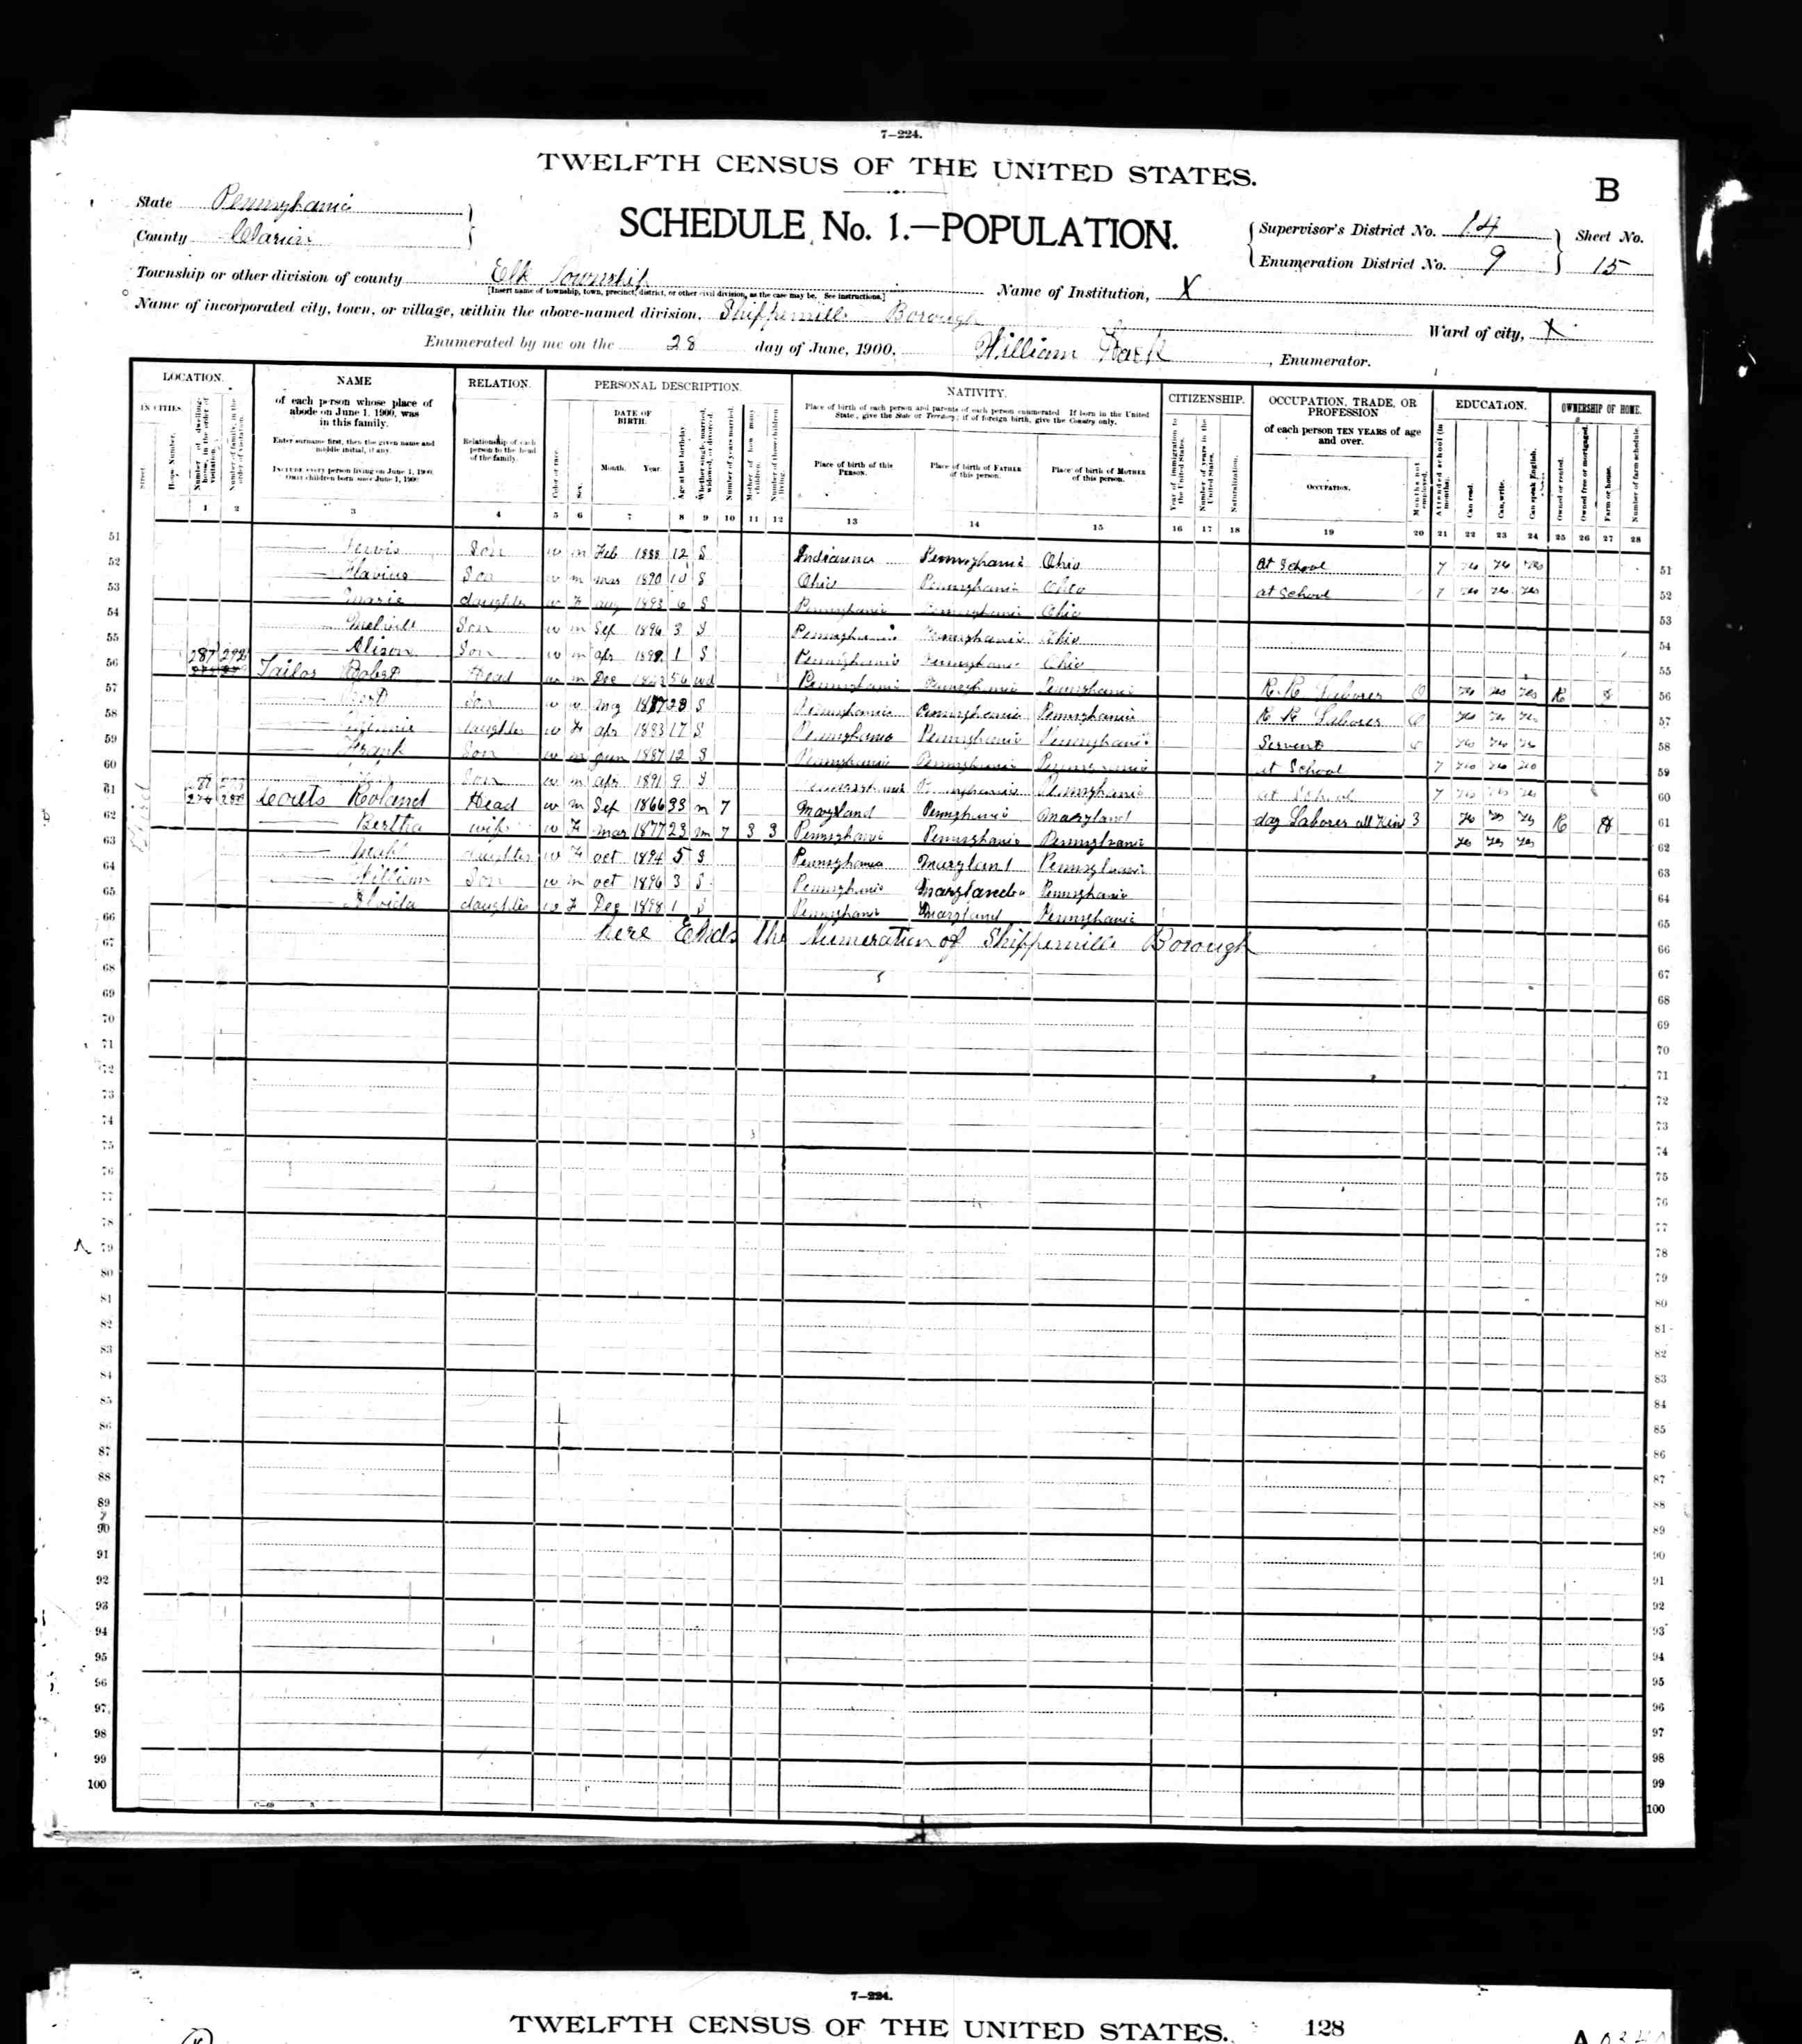 7—224.
TWELFTH CENSUS OF THE UNITED STATES.
B
State Pennsylvania
SCHEDULE No. 1.—POPULATION.
County Clarion
Supervisor's District No. 14
Sheet No.
Enumeration District No. 9
15
Township or other division of county Elk Township
[Insert name of township, town, precinct, district, or other civil division, as the case may be. See instructions.]
Name of Institution, X
Name of incorporated city, town, or village, within the above-named division, Shippenville Borough
Ward of city, X
Enumerated by me on the 28 day of June, 1900, William , Enumerator.
LOCATION. NAME RELATION. PERSONAL DESCRIPTION. NATIVITY. CITIZENSHIP. OCCUPATION, TRADE, OR PROFESSION EDUCATION. OWNERSHIP OF HOME.
IN CITIES.
Street.
House Number.
Number of dwelling-house, in the order of visitation.
Number of family, in the order of visitation.
of each person whose place of abode on June 1, 1900, was in this family.
Enter surname first, then the given name and middle initial, if any.
INCLUDE every person living on June 1, 1900.
OMIT children born since June 1, 1900.
Relationship of each person to the head of the family.
Color or race.
Sex.
DATE OF BIRTH.
Month. Year.
Age at last birthday.
Whether single, married, widowed, or divorced.
Number of years married.
Mother of how many children.
Number of these children living.
Place of birth of each person and parents of each person enumerated. If born in the United States, give the State or Territory; if of foreign birth, give the Country only.
Place of birth of this PERSON.
Place of birth of FATHER of this person.
Place of birth of MOTHER of this person.
Year of immigration to the United States.
Number of years in the United States.
Naturalization.
of each person TEN YEARS of age and over.
OCCUPATION.
Months not employed.
Attended school (in months).
Can read.
Can write.
Can speak English.
Owned or rented.
Owned free or mortgaged.
Farm or house.
Number of farm schedule.
1 2 3 4 5 6 7 8 9 10 11 12 13 14 15 16 17 18 19 20 21 22 23 24 25 26 27 28
51 Son w m Feb 1888 12 S Indianna Pennsylvania Ohio at School 7 yes yes yes 51
52 Flavius Son w m mar 1890 10 S Ohio Pennsylvania Ohio at School 7 yes yes yes 52
53 Marie daughter w F aug 1893 6 S Pennsylvania Pennsylvania Ohio 53
54 Son w m Sep 1896 3 S Pennsylvania Pennsylvania Ohio 54
55 287 Son w m apr 1899 1 S Pennsylvania Pennsylvania Ohio 55
56 Tailor Robert Head w m Dec 56 wd Pennsylvania Pennsylvania Pennsylvania R. R. Laborer 0 yes yes yes R 56
57 Son w 28 S Pennsylvania Pennsylvania Pennsylvania R R Laborer 0 yes yes yes 57
58 daughter w F apr 1883 17 S Pennsylvania Pennsylvania Pennsylvania Servent yes yes yes 58
59 Frank Son w m 1887 12 S Pennsylvania Pennsylvania Pennsylvania at School 7 yes yes yes 59
60 Son w m apr 1891 9 S Pennsylvania Pennsylvania Pennsylvania at School 7 yes yes yes 60
61 Roland Head w m Sep 1866 33 m 7 Maryland Pennsylvania Maryland day Laborer all Kin 3 yes yes yes R 61
62 Bertha wife w F mar 1877 23 m 7 3 3 Pennsylvania Pennsylvania Pennsylvania yes yes yes 62
63 daughter w F oct 1894 5 S Pennsylvania Maryland Pennsylvania 63
64 William Son w m oct 1896 3 S Pennsylvania Maryland Pennsylvania 64
65 daughter w F Dec 1898 1 S Pennsylvania Maryland Pennsylvania 65
66 here Ends the Numeration of Shippenville Borough 66
67 67
68 68
69 69
70 70
71 71
72 72
73 73
74 74
75 75
76 76
77 77
78 78
79 79
80 80
81 81
82 82
83 83
84 84
85 85
86 86
87 87
88 88
89 89
90 90
91 91
92 92
93 93
94 94
95 95
96 96
97 97
98 98
99 99
100 100
7—224.
TWELFTH CENSUS OF THE UNITED STATES.
128
A